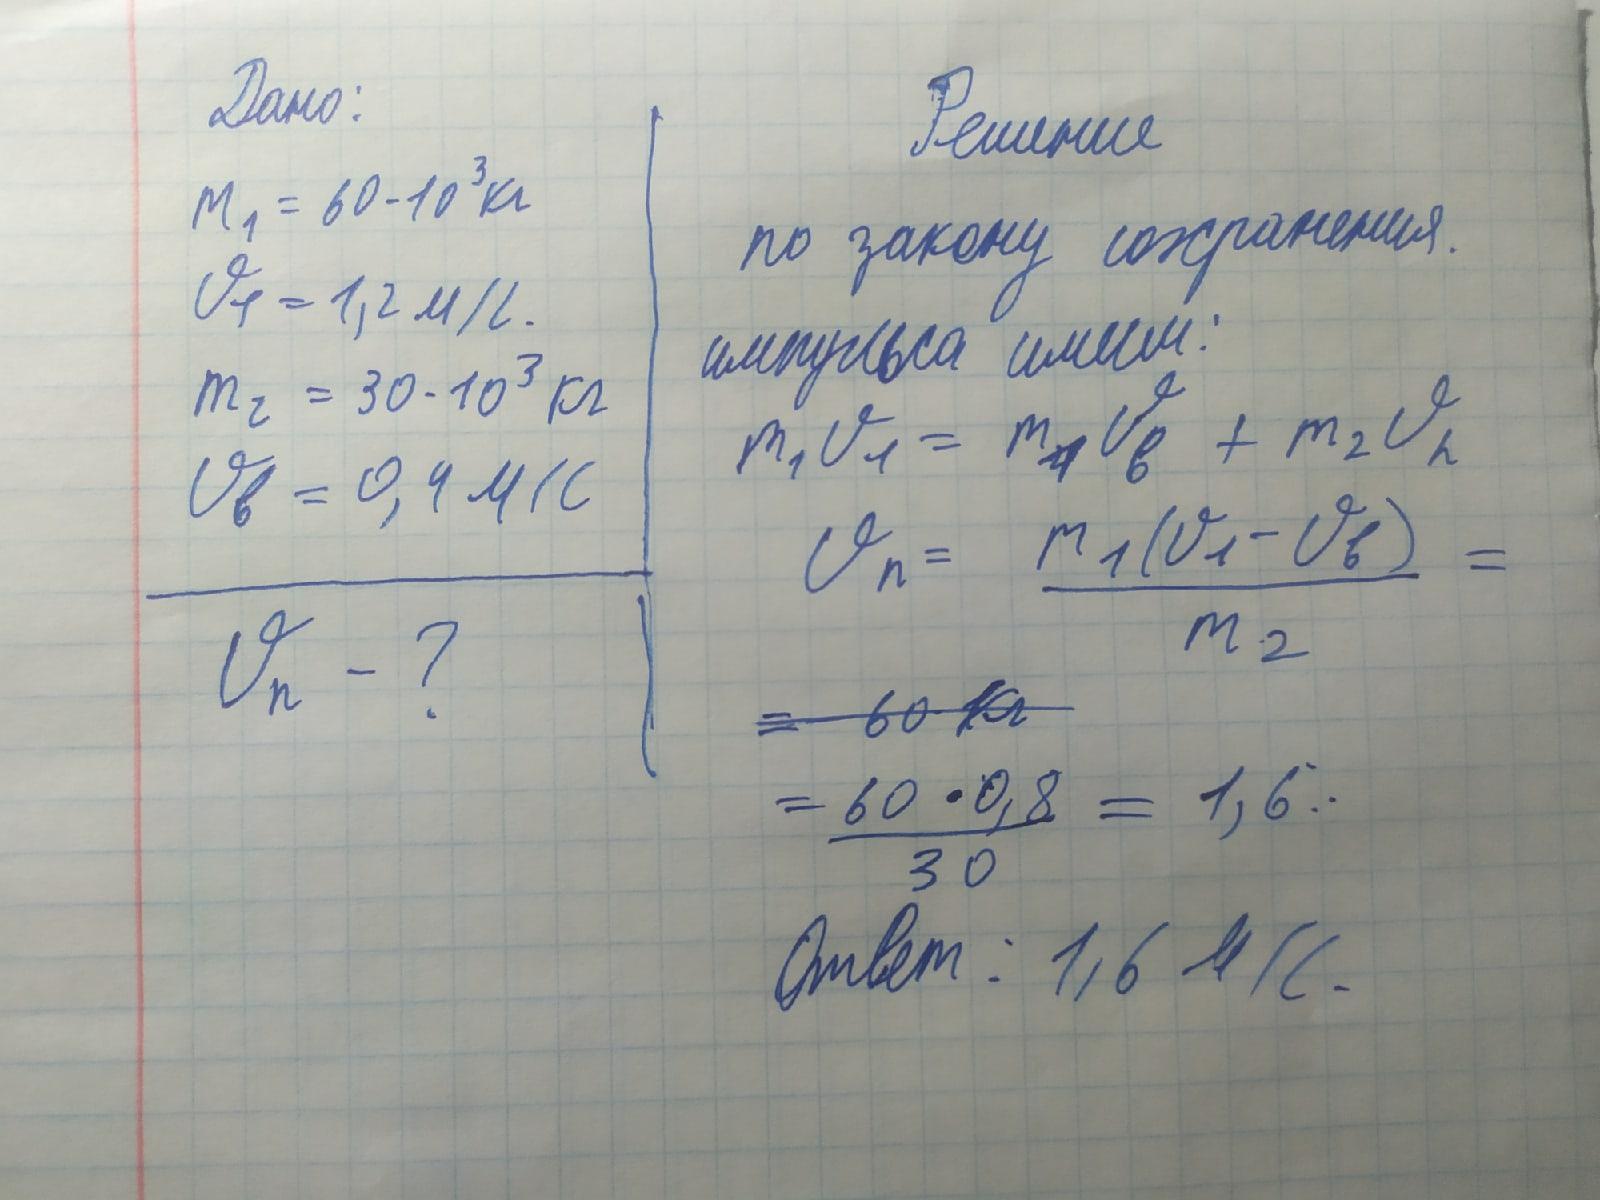 Дано:
m₁ = 60·10³ кг
υ₁ = 1,2 м/с.
m₂ = 30·10³ кг
υв = 0,4 м/с
υп - ?
Решение
по закону сохранения.
импульса имеем:
m₁υ₁ = m₁υв + m₂υп
υп = m₁(υ₁ - υв) / m₂ =
= 60 кг
= 60 · 0,8 / 30 = 1,6
Ответ: 1,6 м/с.